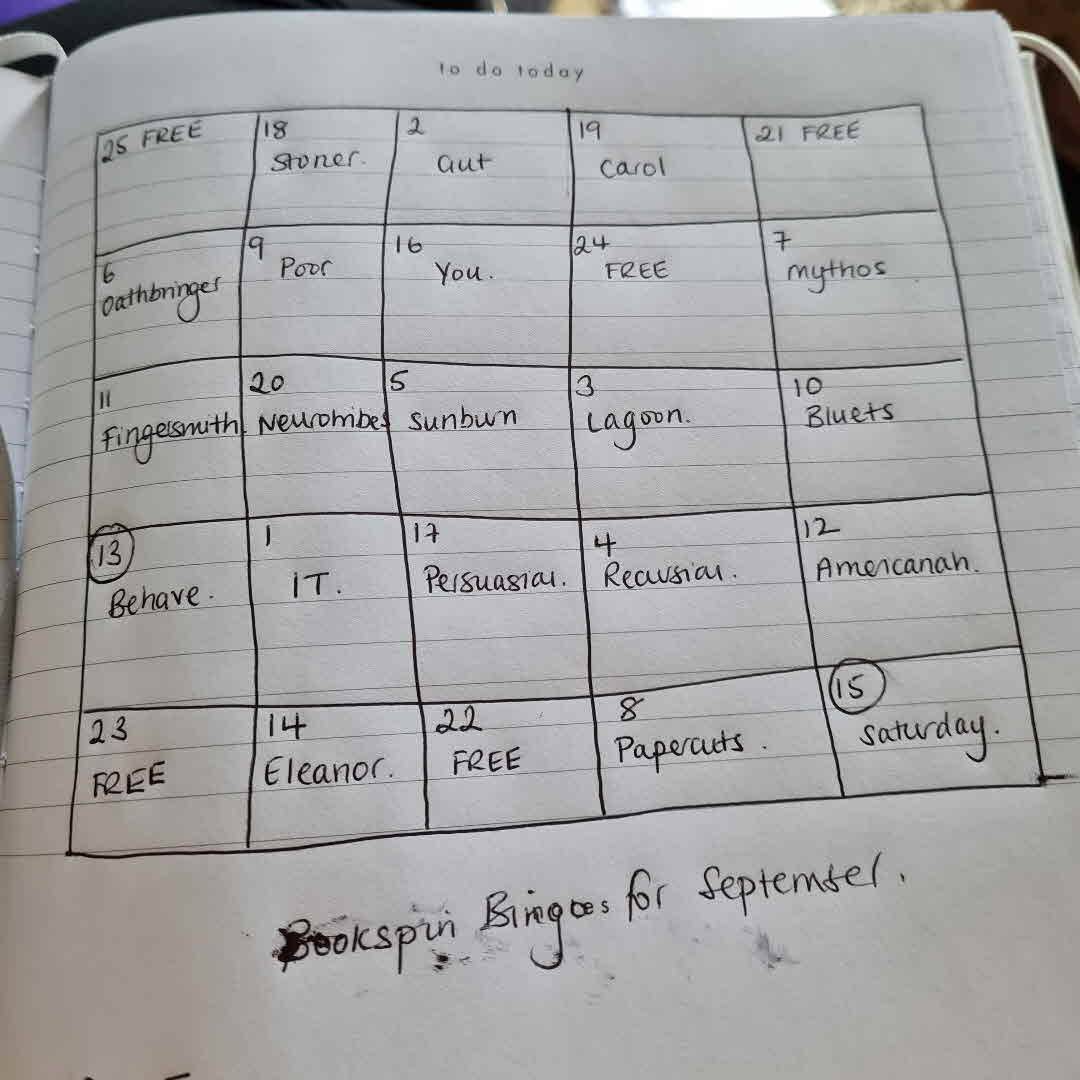 to do today
25 FREE
18
Stoner.
2
Gut
19
Carol
21 FREE
6
Oathbringer
9
Poor
16
You.
24
FREE
7
mythos
11
Fingersmith
20
Neurotribes
5
Sunburn
3
Lagoon.
10
Bluets
13
Behave.
1
IT.
17
Persuasion.
4
Recursion.
12
Americanah.
23
FREE
14
Eleanor.
22
FREE
8
Papercuts.
15
Saturday.
Bookspin Bingoes for September.